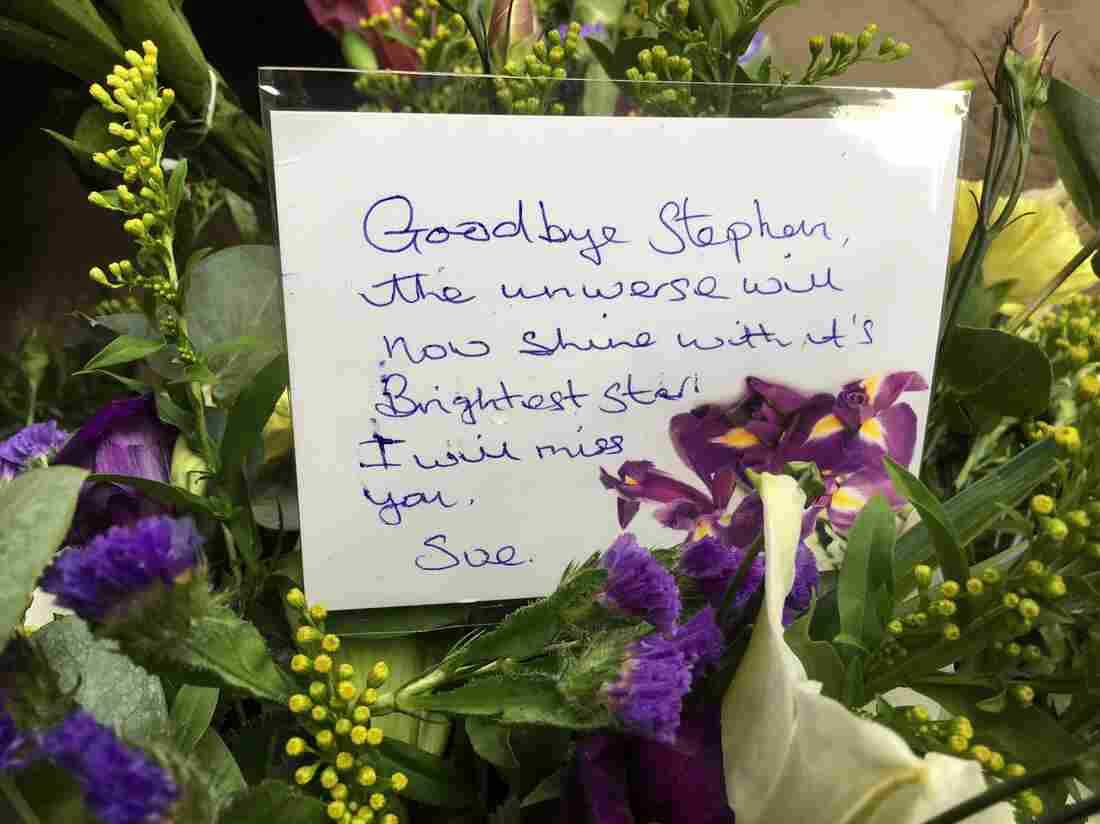 Goodbye Stephen,
the universe will
now shine with it's
Brightest star!
I will miss
you.
Sue.